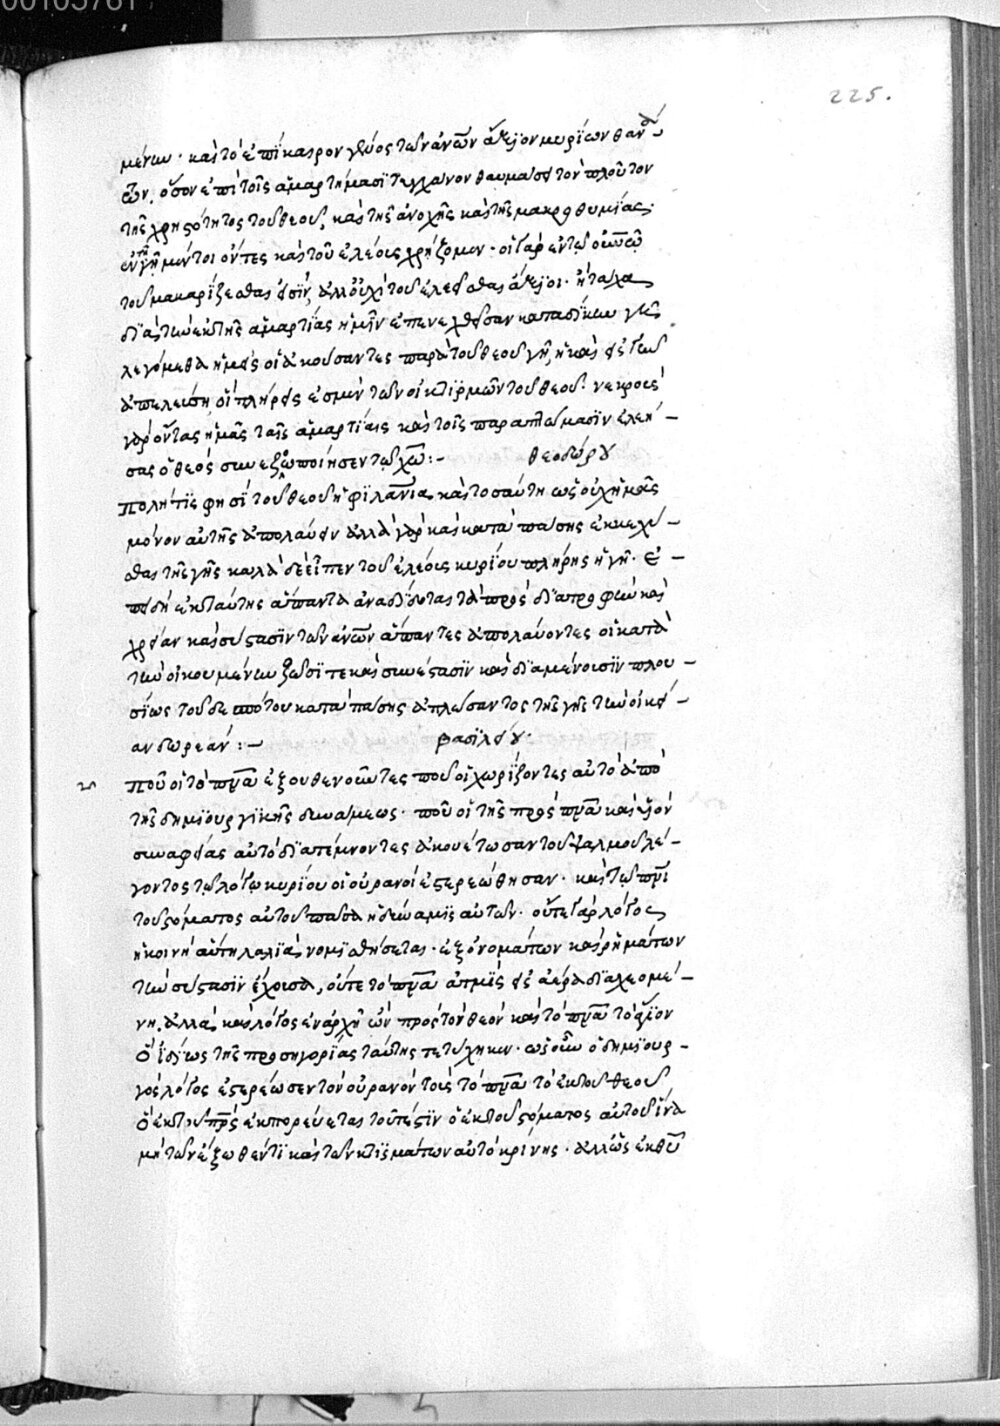 00105761
225.
μένων · καὶ τὸ ἐπίκαιρον γένος τῶν ἀνων ἄξιον μυρίων θανά
των, ὅσον ἐπὶ τοῖς ἁμαρτήμασι τυγχάνον θαυμάσει τὸν πλοῦτον
τῆς χρηστότητος τοῦ θεοῦ, καὶ τῆς ἀνοχῆς καὶ τῆς μακροθυμίας·
ἐν γῇ μέντοι ὄντες καὶ τοῦ ἐλέους χρήζομεν · οἱ γὰρ ἐν τῷ οὐνῶ
τοῦ μακαρίζεσθαι εἰσὶν, ἀλλ' οὐχὶ τοῦ ἐλεεῖσθαι ἄξιοι · ἢ τάχα
διὰ τὴν ἐκ τῆς ἁμαρτίας ἡμῖν ἐπενεχθεῖσαν καταδίκην γῆ
λεγόμεθα ἡμεῖς οἱ ἀκούσαντες παρὰ τοῦ θεοῦ γῆ, ἢ καὶ εἰς γῆν
ἀπελεύση, οἱ πλήρεις ἐσμὲν τῶν οἰκτιρμῶν τοῦ θεοῦ · νεκροὺς
γὰρ ὄντας ἡμᾶς ταῖς ἁμαρτίαις καὶ τοῖς παραπτώμασιν ἐλεή-
σας ὁ θεὸς συνεζωοποίησεν τῷ χω :- θεοδώρου
πολλή τίς φησι τοῦ θεοῦ ἡ φιλανια καὶ τοσαύτη ὡς οὐχ ἡμᾶς
μόνον αὐτῆς ἀπολαύειν ἀλλὰ γὰρ καὶ κατὰ πάσης ἐκκεχύ-
σθαι τῆς γῆς καλὰ δὲ εἶπεν τοῦ ἐλέους κυρίου πλήρης ἡ γῆ · ἐ-
πειδὴ ἐκ ταύτης ἅπαντα ἀναδίδοται τὰ πρὸς διατροφὴν καὶ
χρείαν καὶ σύστασιν τῶν ἀνων ἅπαντες ἀπολαύοντες οἱ κατὰ
τὴν οἰκουμένην ζῶσί τε καὶ συνέστασιν καὶ διαμένουσιν πλου-
σίως τοῦ δεσπότου κατὰ πάσης ἁπλώσαντος τῆς γῆς τὴν οἰκεί-
αν δωρεάν :- βασιλείου ·
ποῦ οἱ τὸ πνα ἐξουθενοῦντες ποῦ οἱ χωρίζοντες αὐτὸ ἀπὸ
τῆς δημιουργικῆς δυνάμεως · ποῦ οἱ τῆς πρὸς πρα καὶ υἱὸν
συναφείας αὐτὸ διατέμνοντες ἀκουέτωσαν τοῦ ψαλμοῦ λέ-
γοντος τῷ λόγῳ κυρίου οἱ οὐρανοὶ ἐστερεώθησαν · καὶ τῷ πνι
τοῦ στόματος αὐτοῦ πᾶσα ἡ δύναμις αὐτῶν · οὔτε γὰρ λόγος
ἡ κοινὴ αὕτη λαλιὰ νομισθήσεται · ἐξ ὀνομάτων καὶ ῥημάτων
τὴν σύστασιν ἔχουσα, οὔτε τὸ πνα ἀτμὶς εἰς ἀέρα διαχεομέ-
νη, ἀλλὰ καὶ λόγος ἐν ἀρχῇ ὢν πρὸς τὸν θεὸν καὶ τὸ πνα τὸ ἅγιον
ὃ ἰδίως τῆς προσηγορίας ταύτης τετύχηκεν · ὡς οὖν ὁ δημιουρ-
γὸς λόγος ἐστερέωσεν τὸν οὐρανὸν οὕτως τὸ πνα τὸ ἐκ τοῦ θεοῦ
ὃ ἐκ τοῦ πρς ἐκπορεύεται τουτέστιν ὃ ἐκ τοῦ στόματος αὐτοῦ ἵνα
μὴ τῶν ἔξωθέν τι καὶ τῶν κτισμάτων αὐτὸ κρίνης · ἀλλ' ὡς ἐκ θυ